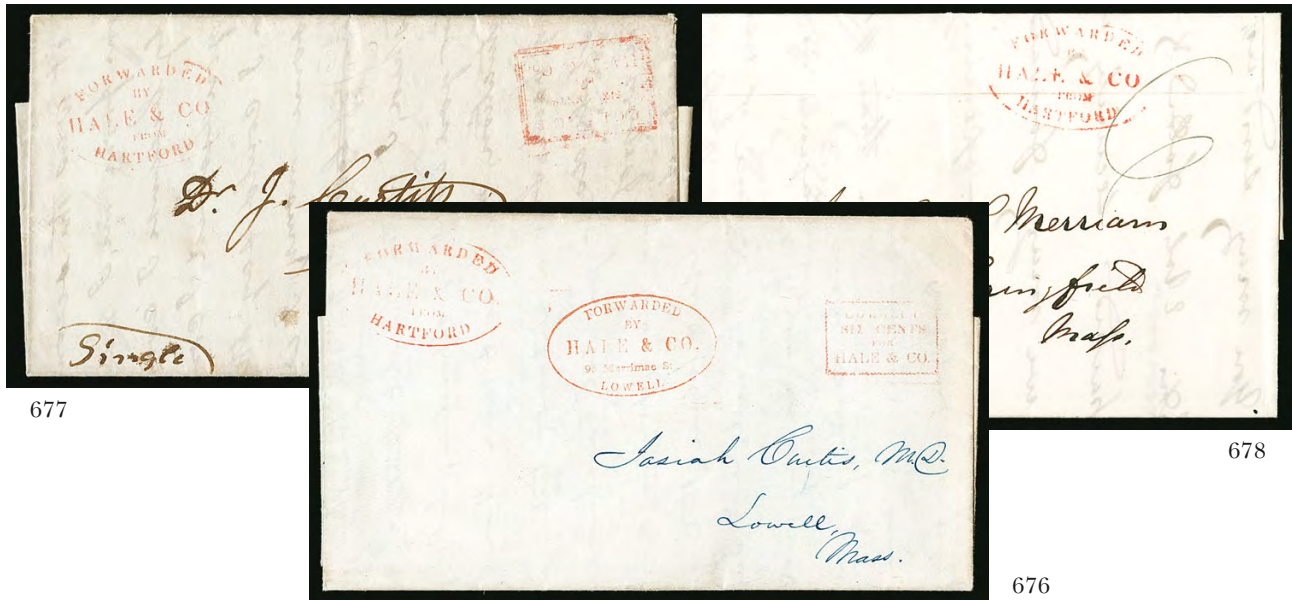 FORWARDED
BY
HALE & CO.
FROM
HARTFORD
Dr. J. Curtis
Single
677
FORWARDED
BY
HALE & CO
FROM
HARTFORD
Merriam
Mass.
678
FORWARDED
BY
HALE & CO.
FROM
HARTFORD
FORWARDED
BY
HALE & CO.
Merrimac St.
LOWELL
SIX CENTS
FOR
HALE & CO.
Josiah Curtis, M.D.
Lowell,
Mass.
676